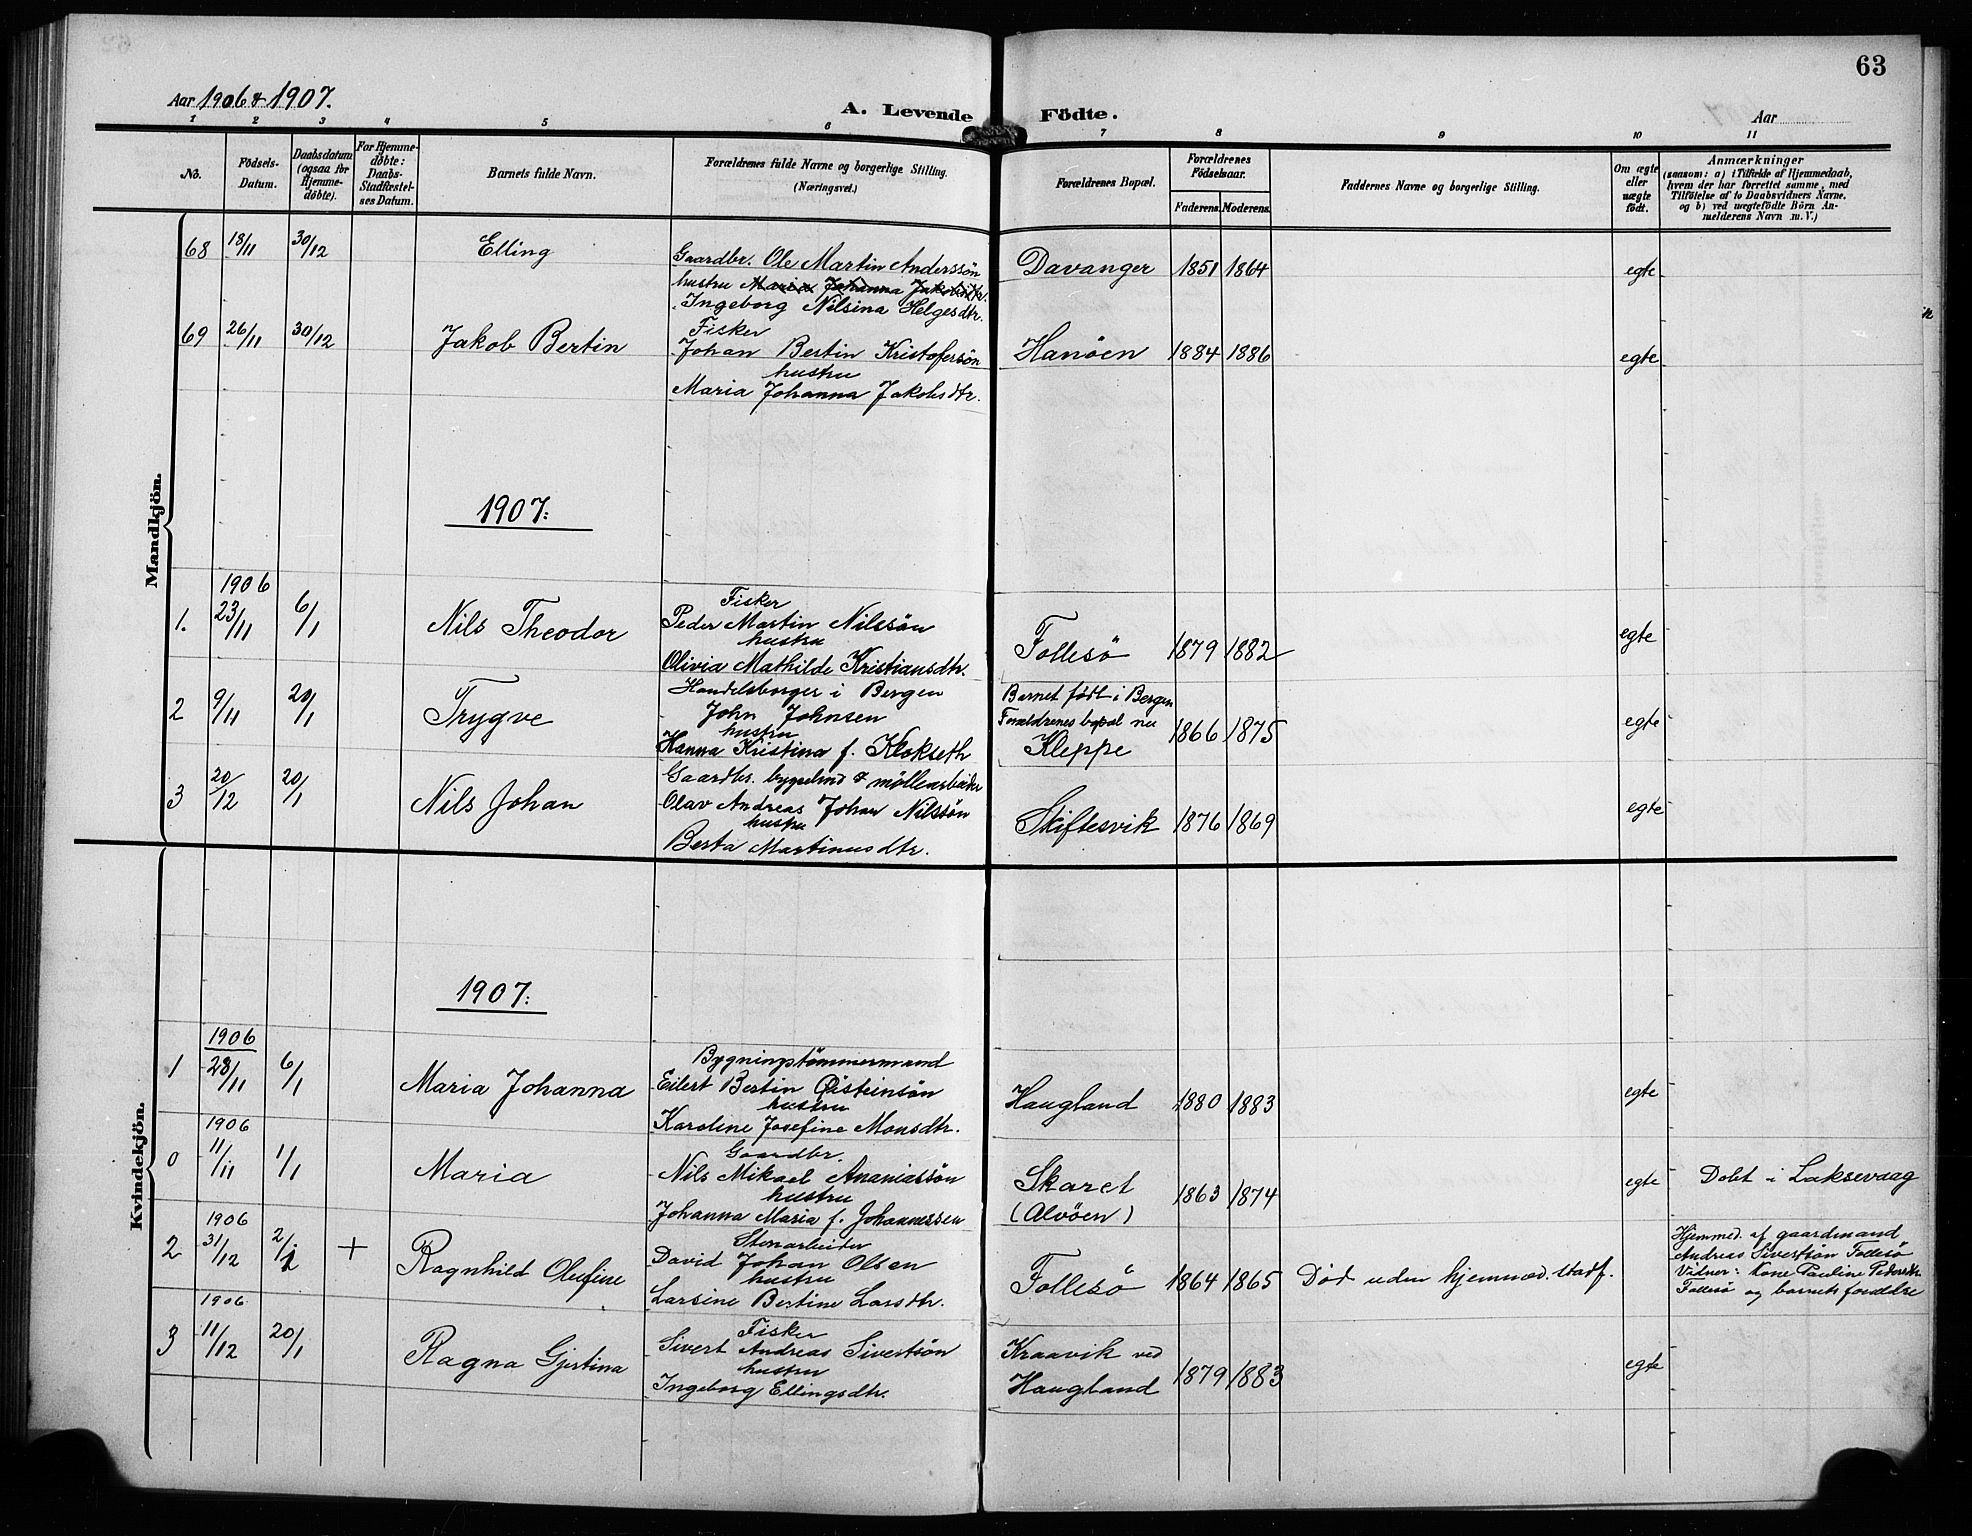 63
Aar 1906 & 1907.
A. Levende Födte.
Aar
1 2 3 4 5 6 7 8 9 10 11
No.
Födsels-
Datum.
Daabsdatum
(ogsaa for
Hjemme-
döbte).
For Hjemme-
döbte:
Daabs-
Stadfæstel-
ses Datum.
Barnets fulde Navn.
Forældrenes fulde Navne og borgerlige Stilling.
(Næringsvei.)
Forældrenes Bopæl.
Forældrenes
Födselsaar.
Faderens. Moderens.
Faddernes Navne og borgerlige Stilling.
Om ægte
eller
uægte
födt.
Anmærkninger
(saasom: a) i Tilfælde af Hjemmedaab,
hvem der har forrettet samme, med
Tilföielse af to Daabsvidners Navne.
og b) ved uægtefödte Börn An-
melderens Navn m. V.)
Mandkjön.
68 18/11 30/12 Elling Gaardbr. Ole Martin Anderssön Davanger 1851 1864 egte
hustru Maria Johanna Jakobsdtr.
Ingeborg Nilsina Helgesdtr.
69 26/11 30/12 Jakob Bertin Fisker
Johan Bertin Kristofersön Hanöen 1884 1886 egte
hustru
Maria Johanna Jakobsdtr.
1907:
1906
1. 23/11 6/1 Nils Theodor Fisker
Peder Martin Nilssön Follesö 1879 1882 egte
hustru
Olivia Mathilde Kristiansdtr.
2 9/11 20/1 Trygve Handelsborger i Bergen Barnet födt i Bergen
John Johnsen Forældrenes bopæl nu 1866 1875 egte
hustru
Hanna Kristina f. Klokseth Kleppe
3 20/12 20/1 Nils Johan Gaardbr. & möllearbeider
Olav Andreas Johan Nilssön Skiftesvik 1876 1869 egte
hustru
Berta Martinusdtr.
Kvindekjön.
1907:
1906
1 28/11 6/1 Maria Johanna Bygningstömmermand
Eilert Bertin Östeinsön Haugland 1880 1883 egte
hustru
Karoline Josefine Monsdtr.
1906
0 11/11 1/1 Maria Gaardbr.
Nils Mikael Ananiassön Skaret 1863 1874 egte Döbt i Laksevaag
hustru (Alvöen)
Johanna Maria f. Johannessen
1906
2 31/12 2/1 + Ragnhild Olufine Stenarbeider
David Johan Olsen Follesö 1864 1865 Död uden hjemmed. stadf.
hustru
Larsine Bertine Larsdtr.
Hjemmed. af gaardmand
Andreas Sivertsön Follesö
Vidner: Kone Pauline Pedersdtr.
Follesö og barnets forældre
1906
3 11/12 20/1 Ragna Gjertina Fisker
Sivert Andreas Sivertsön Kraavik ved 1879 1883 egte
hustru Haugland
Ingeborg Ellingsdtr.